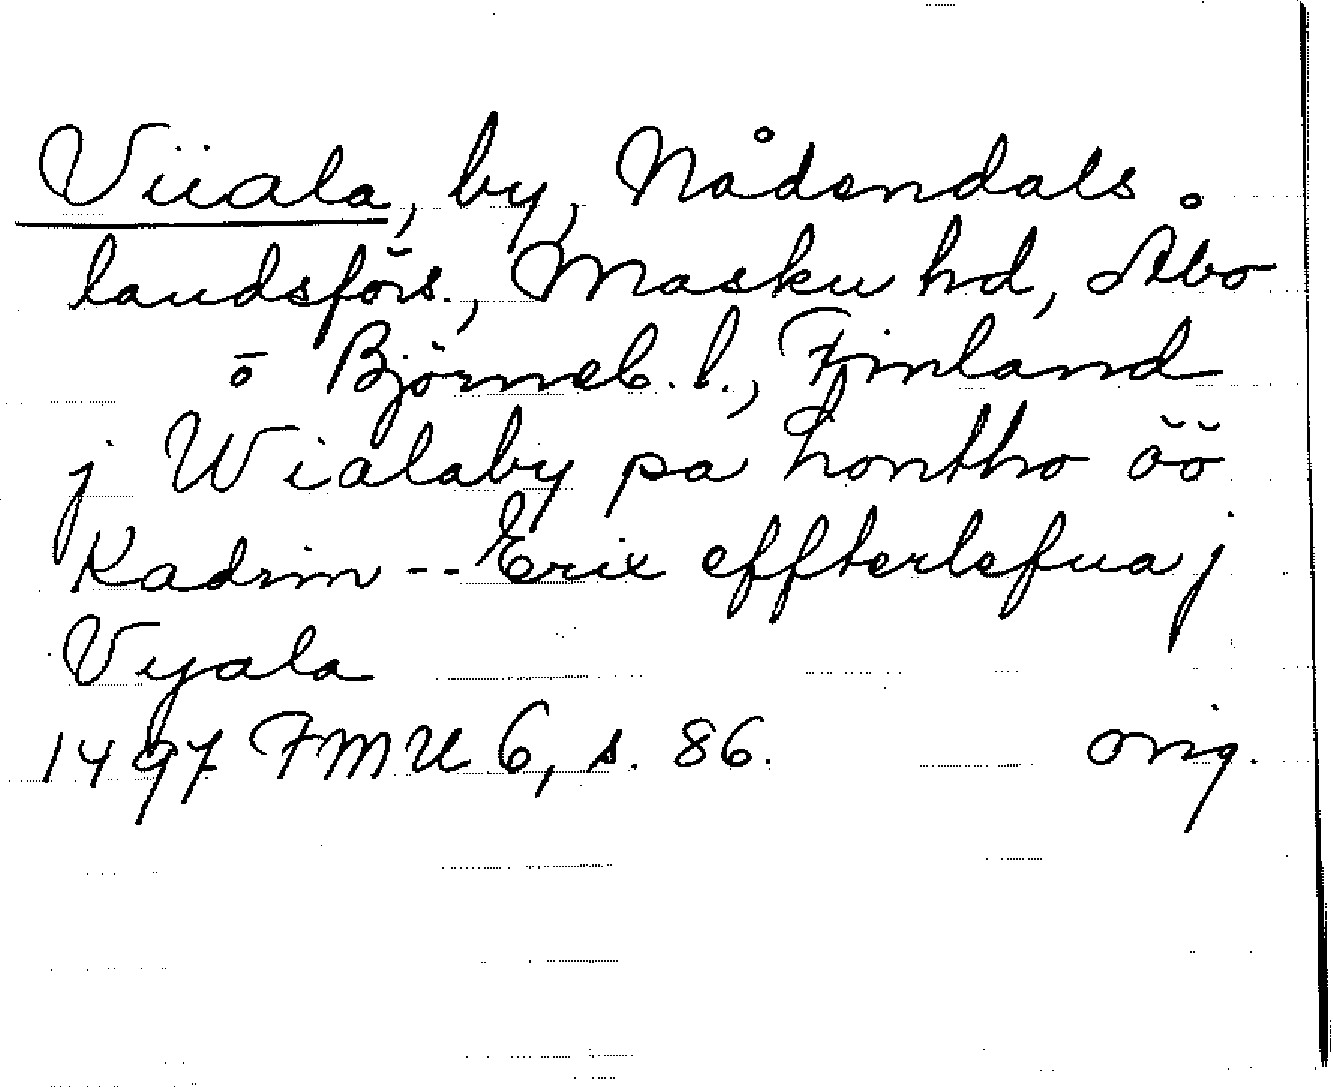 Viiala, by, Nådendals
landsförs., Masku hd, Åbo
o Björneb. l., Finland
j Wialaby pa hontho öö
Kadrin -- Erix effterlefua j
Vyala
1497 FMU 6, s. 86. orig.